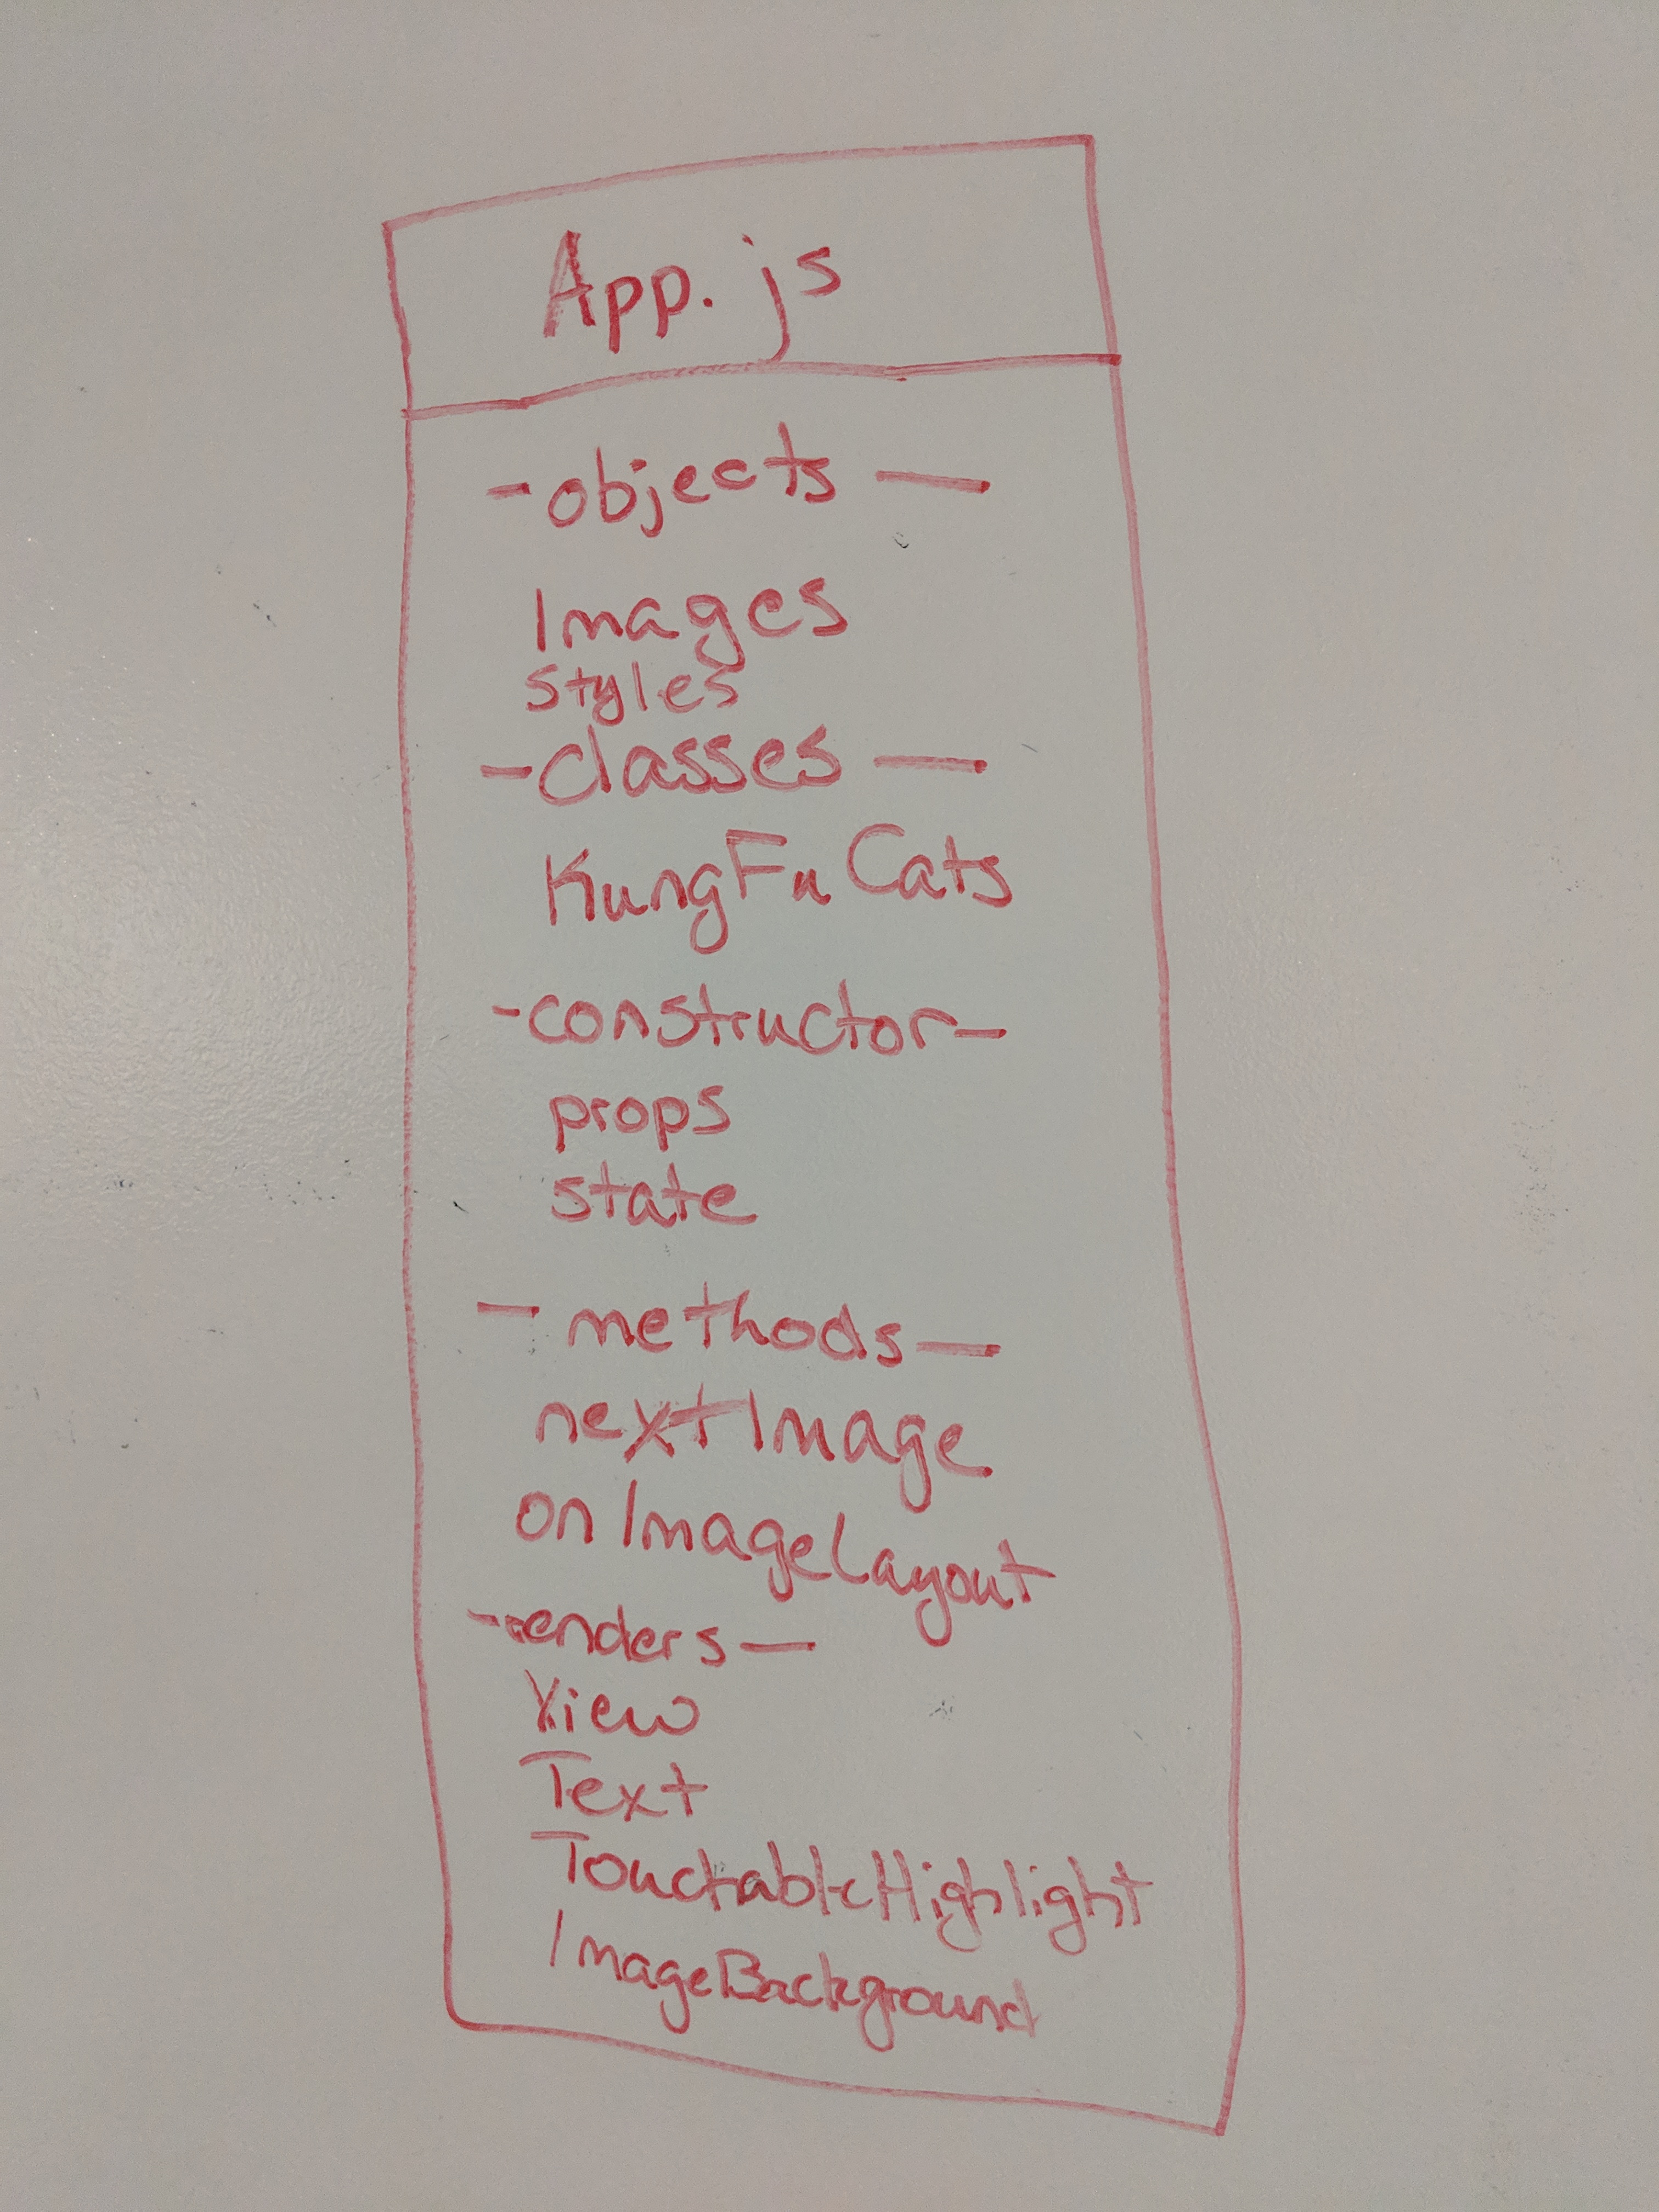 App.js
-objects-
Images
styles
-classes-
KungFuCats
-constructor-
props
state
-methods-
nextImage
onImageLayout
-renders-
View
Text
TouchableHighlight
ImageBackground